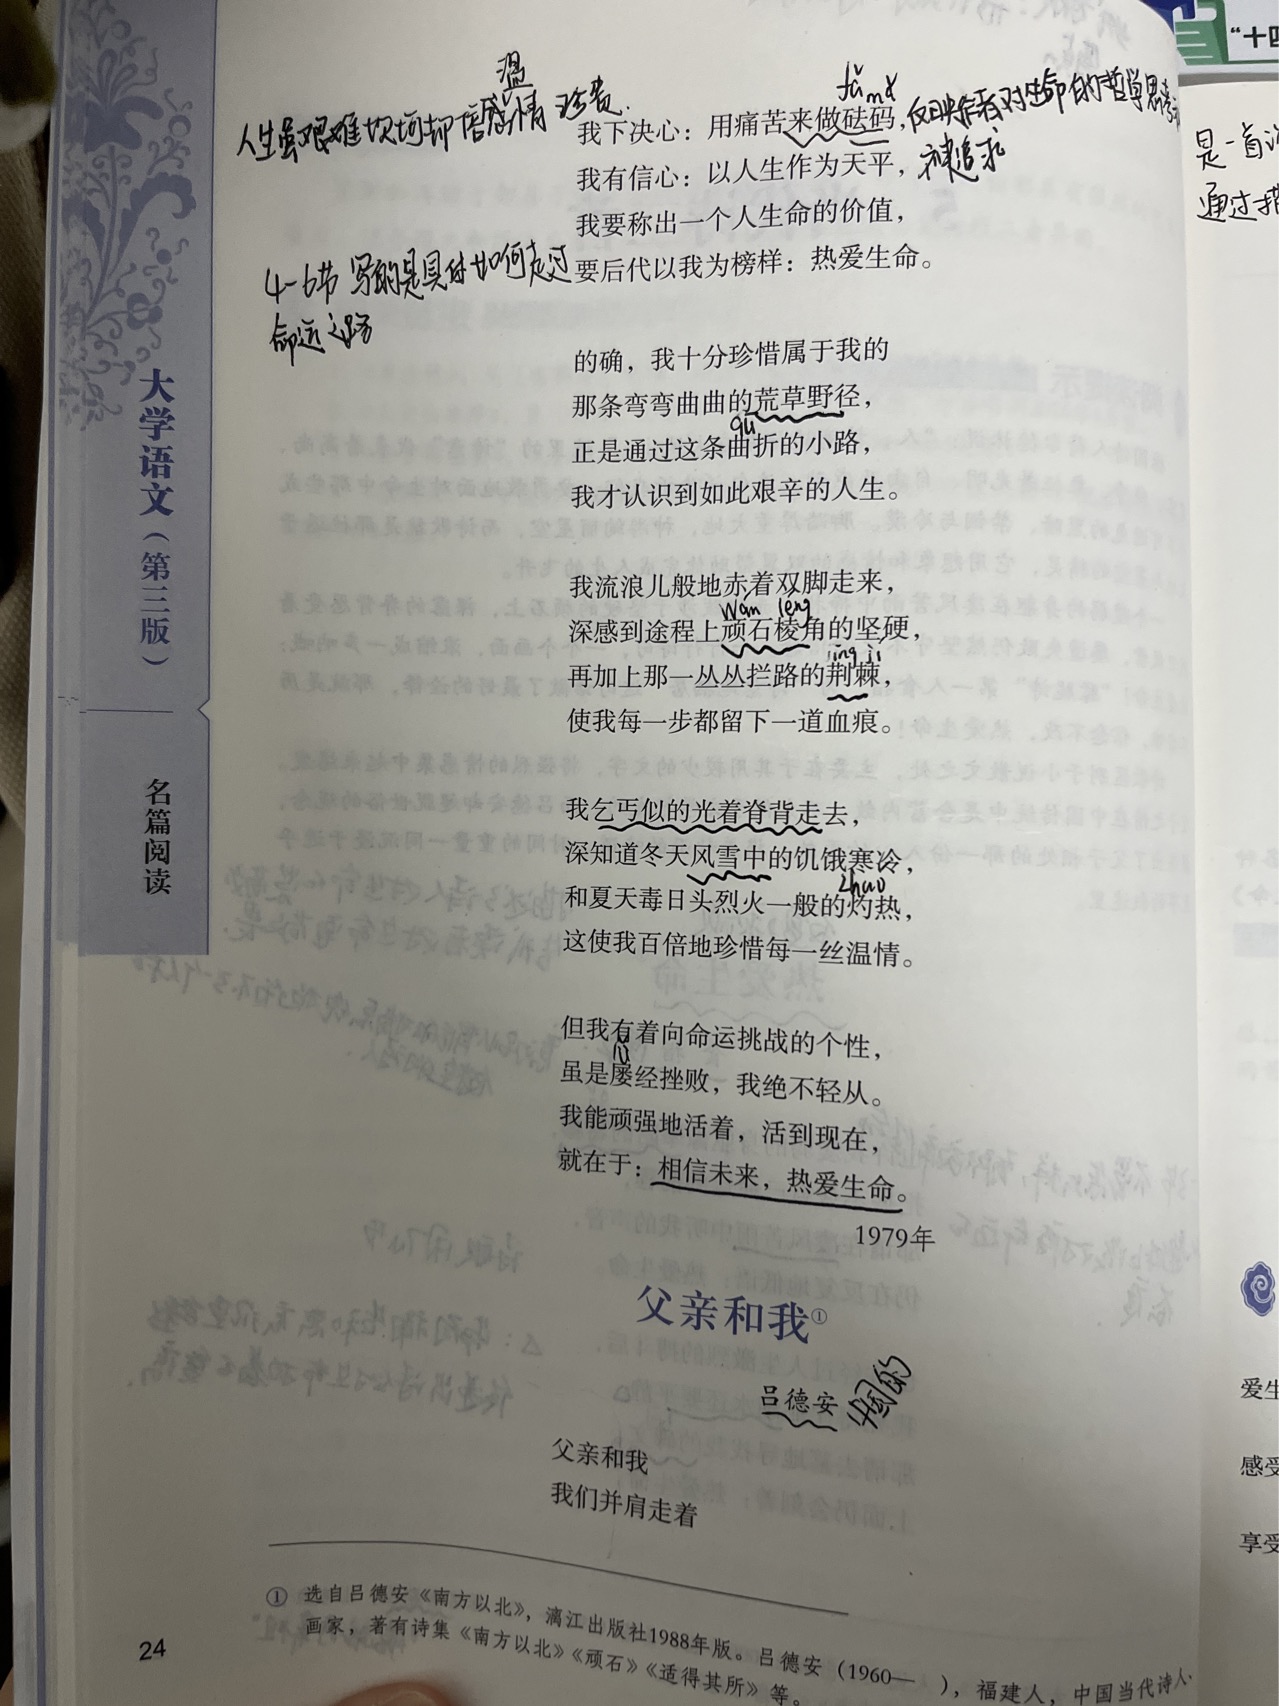 "十四
温
人生虽艰难坎坷却倍感情 珍贵.
fǎ mǎ
我下决心：用痛苦来做砝码，
反映作者对生命的哲学思考
我有信心：以人生作为天平，
和追求
我要称出一个人生命的价值，
要后代以我为榜样：热爱生命。
4-6节 写的是具体如何走过
命运之路
的确，我十分珍惜属于我的
那条弯弯曲曲的荒草野径，
qū
正是通过这条曲折的小路，
我才认识到如此艰辛的人生。
我流浪儿般地赤着双脚走来，
wán léng
深感到途程上顽石棱角的坚硬，
jīng jí
再加上那一丛丛拦路的荆棘，
使我每一步都留下一道血痕。
我乞丐似的光着脊背走去，
深知道冬天风雪中的饥饿寒冷，
zhuó
和夏天毒日头烈火一般的灼热，
这使我百倍地珍惜每一丝温情。
但我有着向命运挑战的个性，
虽是屡经挫败，我绝不轻从。
我能顽强地活着，活到现在，
就在于：相信未来，热爱生命。
1979年
父亲和我①
吕德安 中国的
父亲和我
我们并肩走着
① 选自吕德安《南方以北》，漓江出版社1988年版。吕德安（1960—　），福建人，中国当代诗人、
画家，著有诗集《南方以北》《顽石》《适得其所》等。
24
大学语文（第三版）
名篇阅读
是一首
通过
爱生
感受
享受